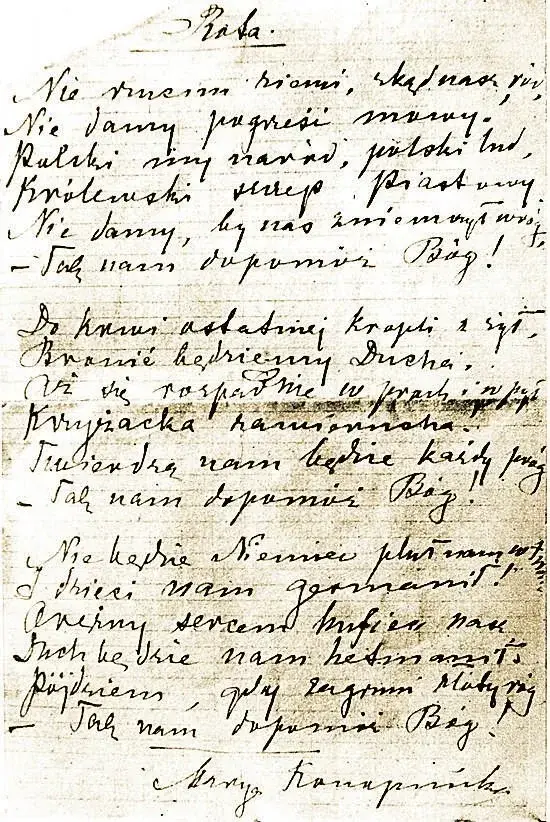 Rota.
Nie rzucim ziemi, skąd nasz ród,
Nie damy pogrześć mowy.
Polski my naród, polski lud,
Królewski szczep Piastowy
Nie damy, by nas zniemczył wróg,
– Tak nam dopomóż Bóg!
Do krwi ostatniej kropli z żył,
Bronić będziemy Ducha.
Aż się rozpadnie w proch i w pył
Krzyżacka zawierucha.
Twierdzą nam będzie każdy próg
– Tak nam dopomóż Bóg!
Nie będzie Niemiec pluł nam w twarz
I dzieci nam germanił!
Orężny sercem hufiec nasz
Duch będzie nam hetmanił.
Pójdziem, gdy zagrzmi złoty róg
– Tak nam dopomóż Bóg!
Marya Konopnicka